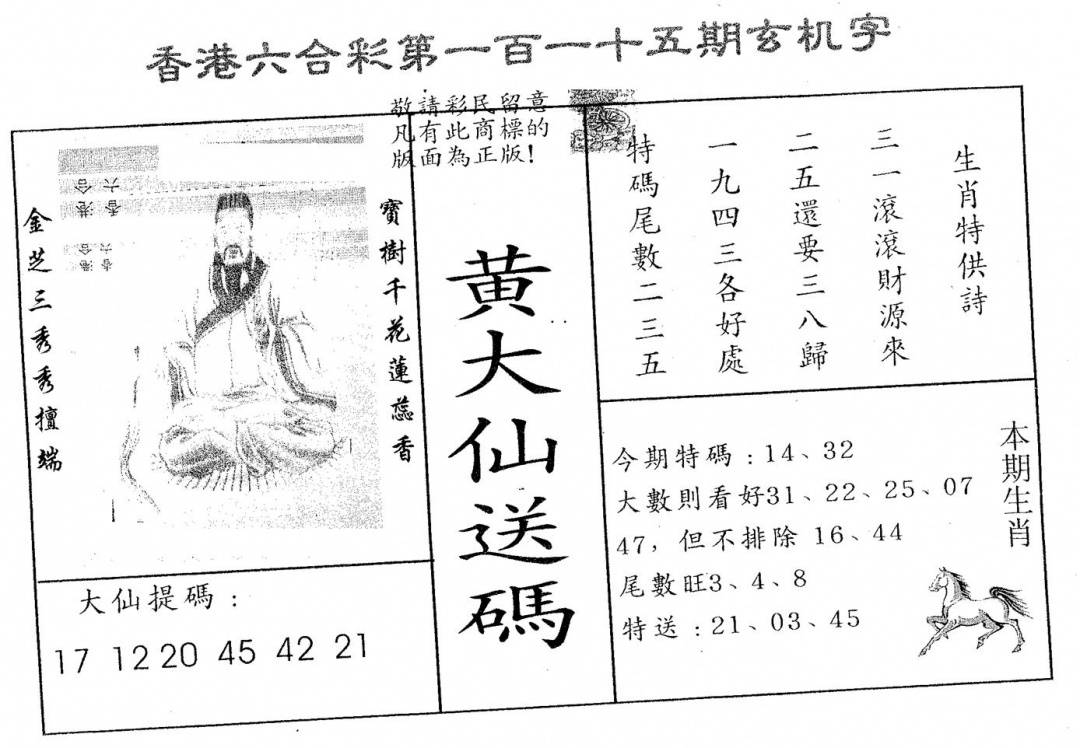 香港六合彩第一百一十五期玄机字
敬請彩民留意
凡有此商標的
版面為正版！
金芝三秀秀擅端
寶樹千花蓮蕊香
香港
六合
香港
六合
大仙提碼：
17 12 20 45 42 21
黃大仙送碼
生肖特供詩
三一滾滾財源來
二五還要三八歸
一九四三各好處
特碼尾數二三五
今期特碼：14、32
大數則看好31、22、25、07
47，但不排除 16、44
尾數旺3、4、8
特送：21、03、45
本期生肖